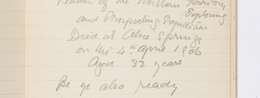 Leader of the Northern Territory
Exploring
and Prospecting Expedition
Died at Alice Springs
on the 4th April 1906
Aged 32 years
Be ye also ready